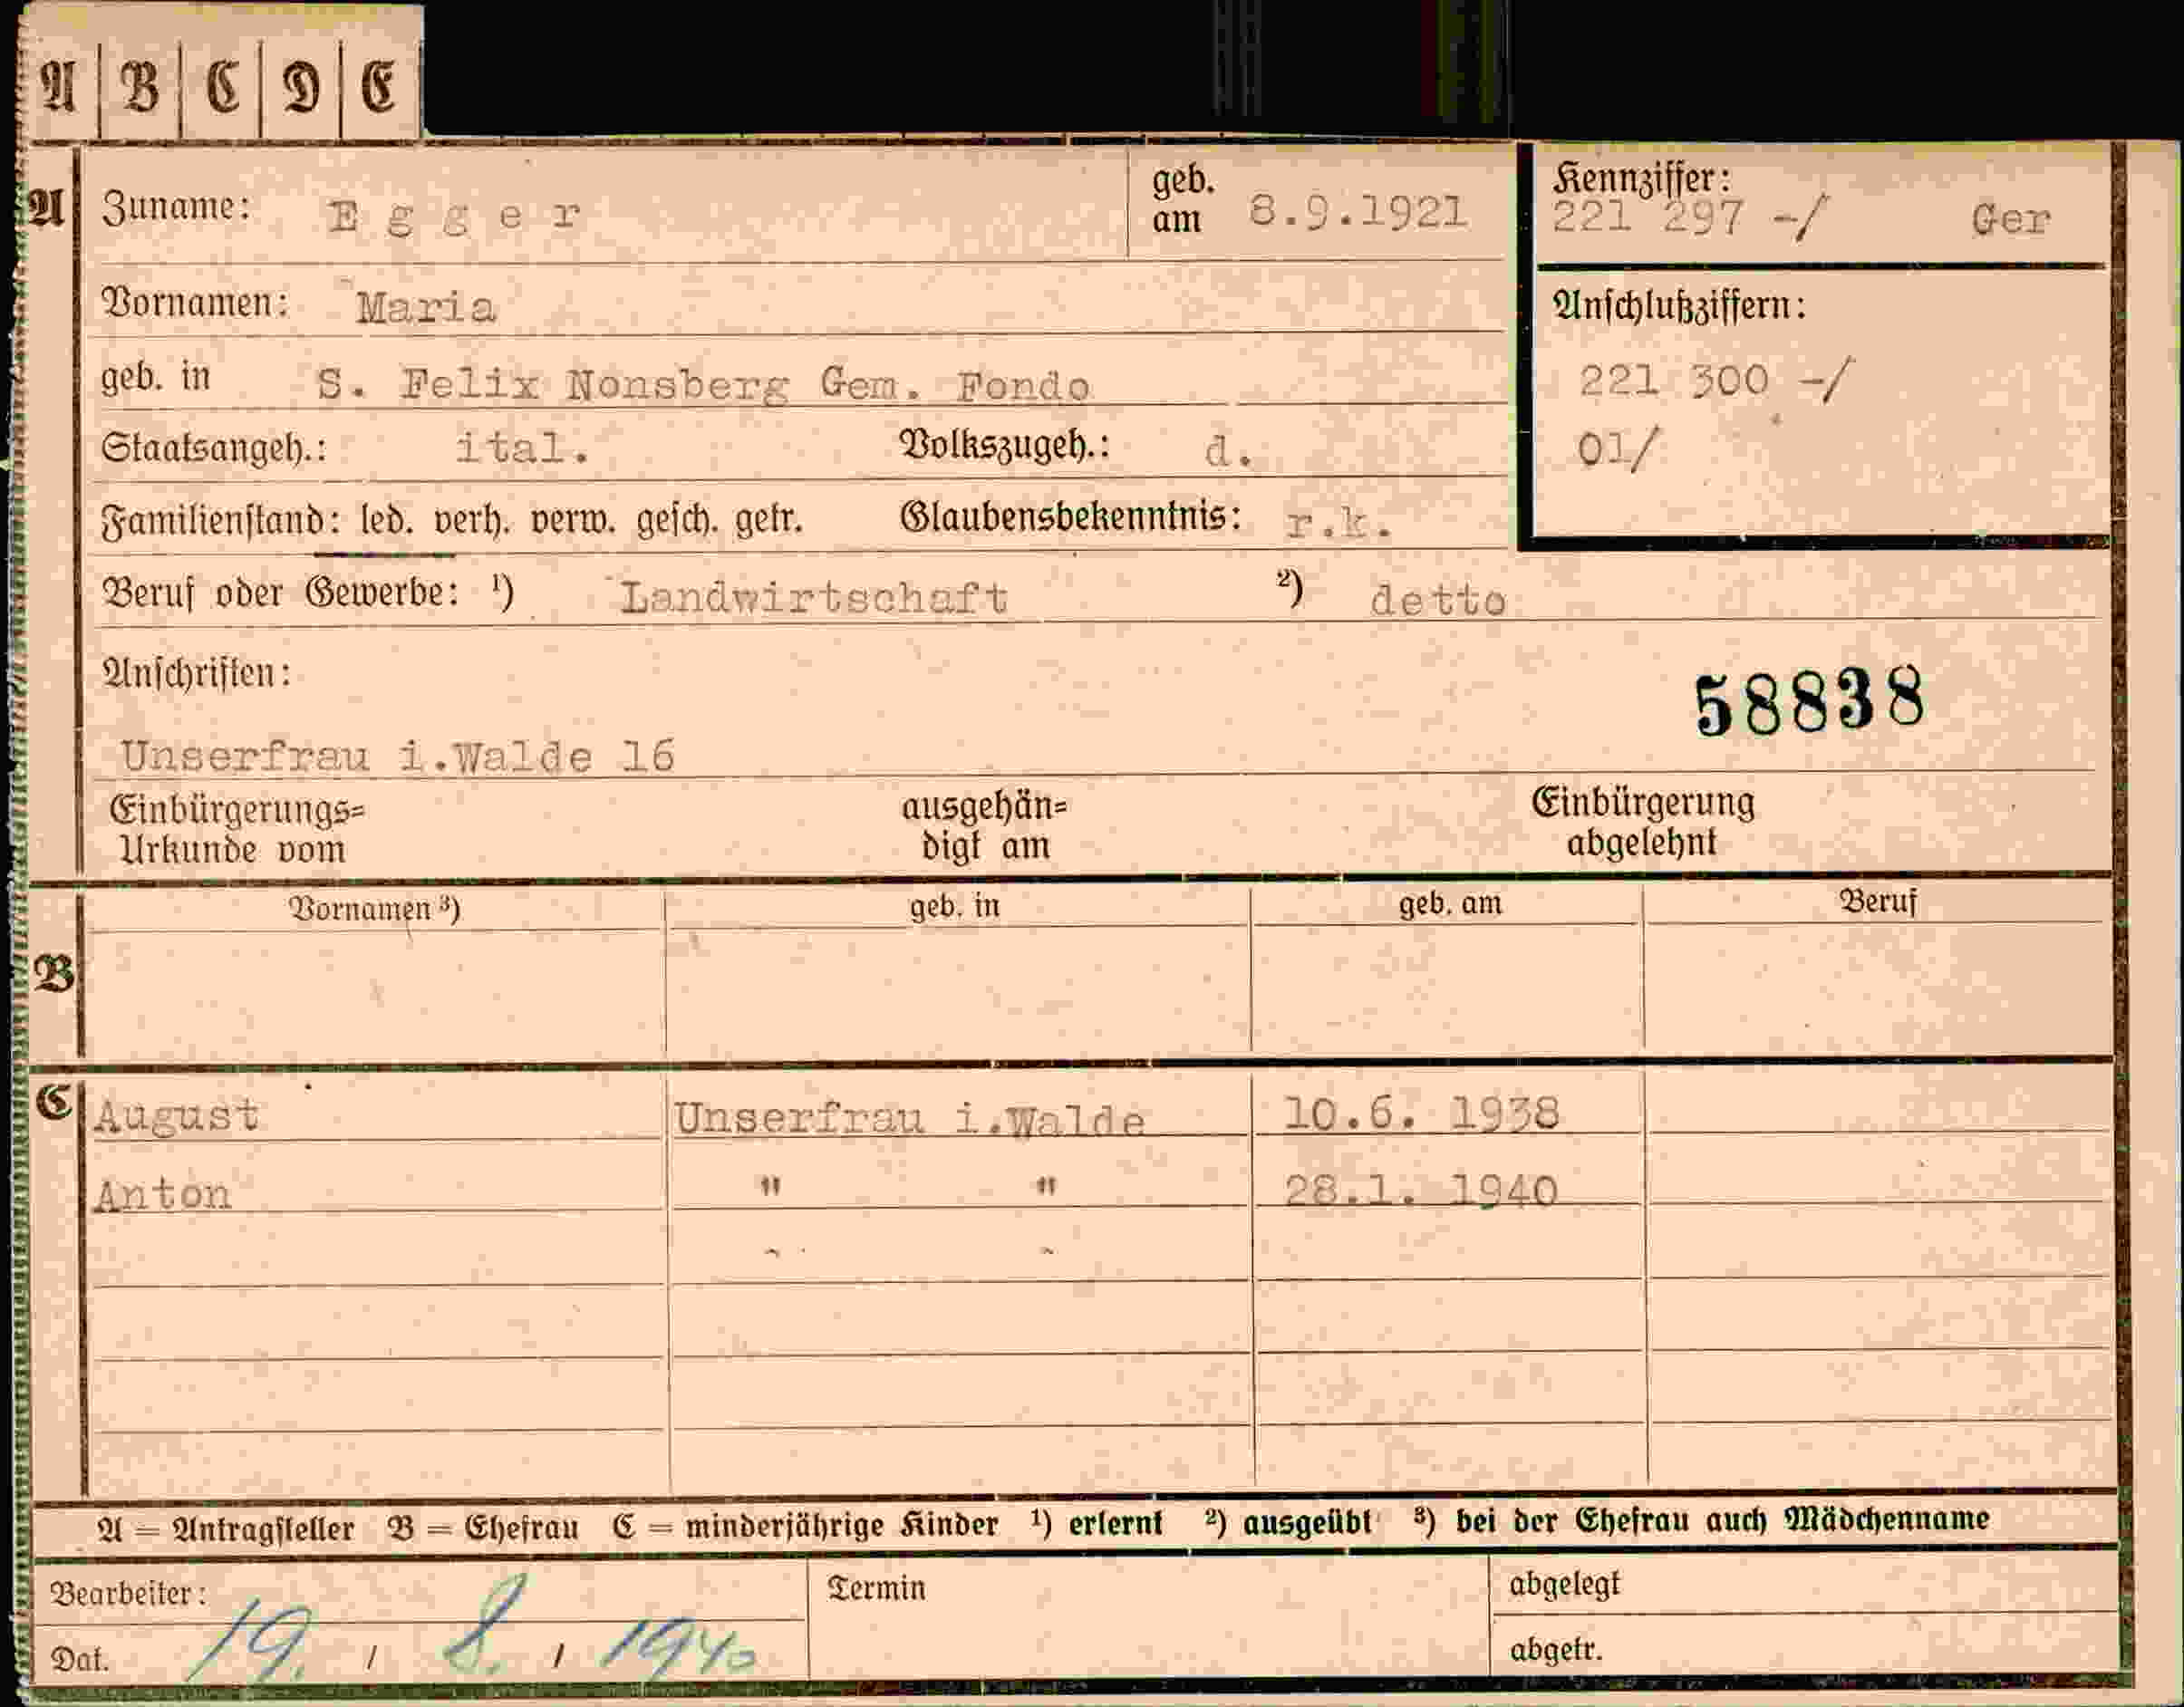 A B C D E
A Zuname: Egger geb. am 8.9.1921
Kennziffer:
221 297 -/ Ger
Vornamen: Maria
Anschlußziffern:
geb. in S. Felix Nonsberg Gem. Fondo
221 300 -/
Staatsangeh.: ital. Volkszugeh.: d.
01/
Familienstand: led. verh. verw. gesch. getr. Glaubensbekenntnis: r.k.
Beruf oder Gewerbe: ¹) Landwirtschaft ²) detto
Anschriften:
58838
Unserfrau i.Walde 16
Einbürgerungs= ausgehän= Einbürgerung
Urkunde vom digt am abgelehnt
Vornamen ³) geb. in geb. am Beruf
B
C August Unserfrau i.Walde 10.6. 1938
Anton " " 28.1. 1940
A = Antragsteller B = Ehefrau C = minderjährige Kinder ¹) erlernt ²) ausgeübt ³) bei der Ehefrau auch Mädchenname
Bearbeiter: Termin abgelegt
Dat. 19. / 8. / 1940 abgetr.